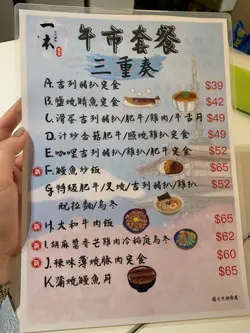 一禾
午市套餐
三重奏
A.吉列豬扒定食 $39
B.鹽燒鯖魚定食 $42
C.滑蛋吉列豬扒/肥牛/雞肉/牛舌丼 $49
D.汁炒香菇肥牛/照燒雞扒定食 $49
E.咖哩吉列豬扒/雞扒/肥牛定食 $52
新 F.鰻魚炒飯 $65
G.特級肥牛/叉燒/吉列豬扒/雞扒 $52
豚拉麵/烏冬
新 H.大和牛肉飯 $65
新 I.胡麻醬香芒雞肉冷稻庭烏冬 $62
新 J.辣味薄燒豚肉定食 $60
K.蒲燒鰻魚丼 $65